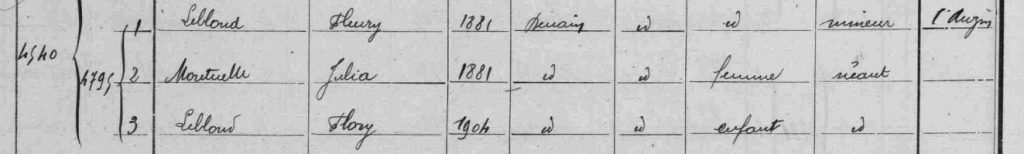 4540 4795 1 Leblond Fleury 1881 Denain id id mineur C. Anzin
2 Montuelle Julia 1881 id id femme néant
3 Leblond Flory 1904 id id enfant id